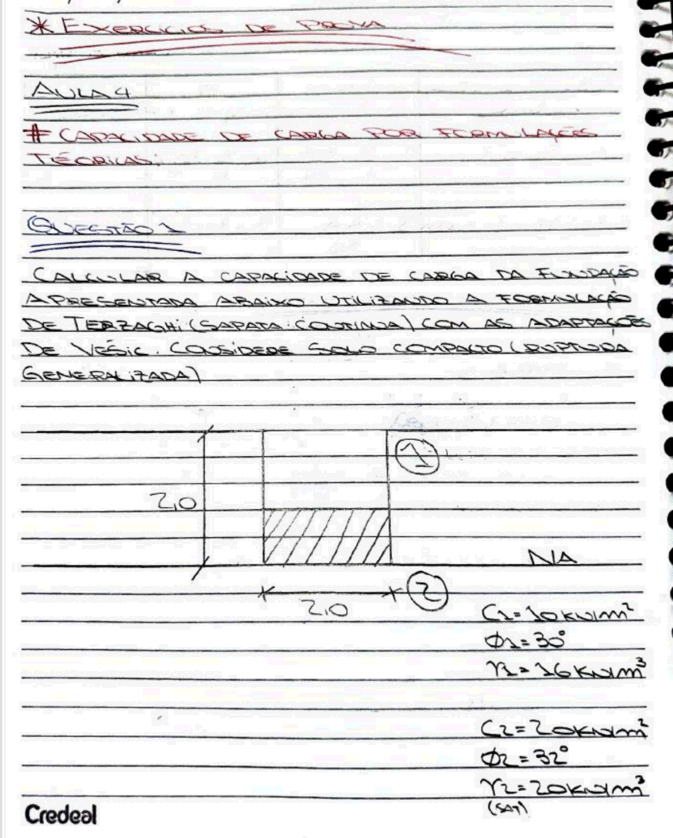 * EXERCÍCIOS DE PROVA
AULA 4
# CAPACIDADE DE CARGA POR FORMULAÇÕES
TEÓRICAS:
QUESTÃO 1
CALCULAR A CAPACIDADE DE CARGA DA FUNDAÇÃO
APRESENTADA ABAIXO UTILIZANDO A FORMULAÇÃO
DE TERZAGHI (SAPATA CONTINUA) COM AS ADAPTAÇÕES
DE VÉSIC. CONSIDERE SOLO COMPACTO (RUPTURA
GENERALIZADA)
1
2,0
NA
2,0
2
C1 = 10 KN/m²
Φ1 = 30°
γ1 = 16 KN/m³
C2 = 20 KN/m²
Φ2 = 32°
γ2 = 20 KN/m³
(SAT)
Credeal